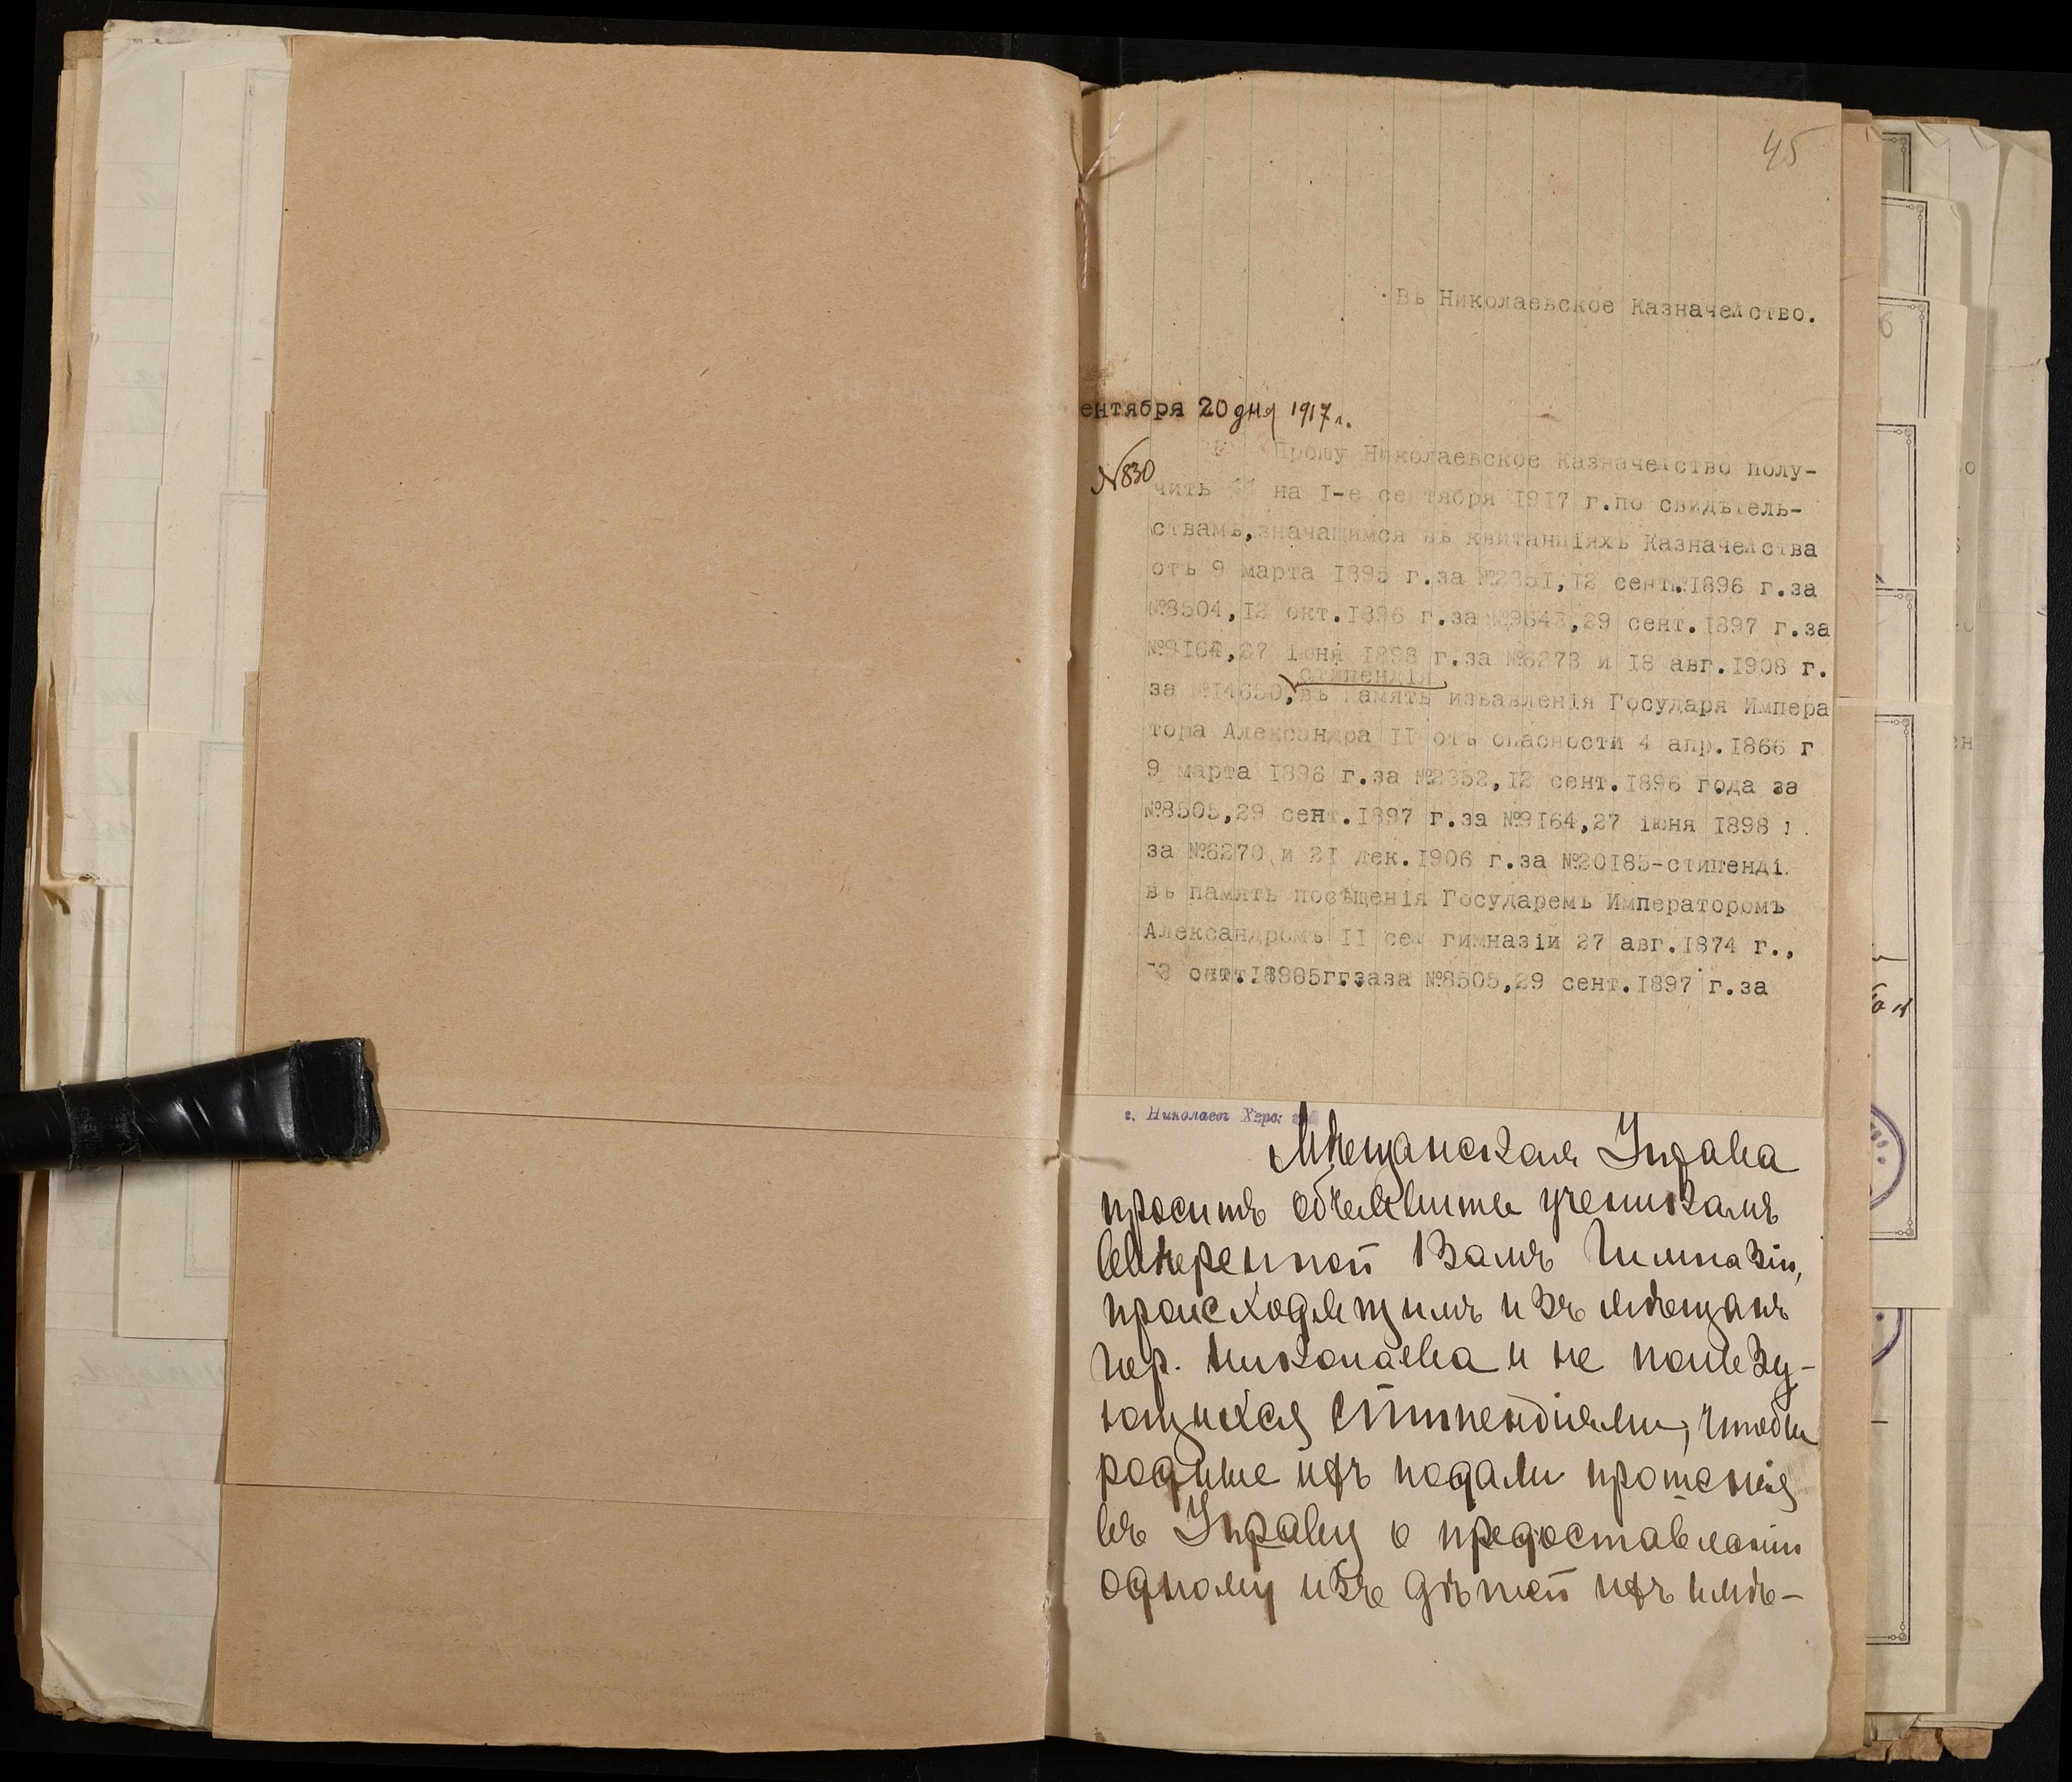 45
Въ Николаевское Казначейство.
ентября 20 дня 1917 г.
№830
Прошу Николаевское Казначейство полу-
чить на I-е сентября 1917 г.по свидѣтель-
ствамъ,значащимся въ квитанціяхъ Казначейства
отъ 9 марта 1895 г.за №2351,12 сент.1896 г.за
№8504,12 окт.1896 г.за №9643,29 сент.1897 г.за
№9164,27 іюня 1898 г.за №6273 и 18 авг.1908 г.
стипендія
за №14630,въ память избавленія Государя Импера
тора Александра II отъ опасности 4 апр.1866 г
9 марта 1896 г.за №2352,12 сент.1896 года за
№8505,29 сент.1897 г.за №9164,27 іюня 1898 г.
за №6270 и 21 дек.1906 г.за №20185-стипенді
въ память посѣщенія Государемъ Императоромъ
Александромъ II сей гимназіи 27 авг.1874 г.,
№8505,29 сент.1897 г.за
г. Николаевъ Херс.
Мѣщанская Управа
проситъ объявить ученикамъ
ввѣренной Вамъ Гимназіи,
происходящимъ изъ мѣщанъ
гор. Николаева и не пользу-
ющихся стипендіями, чтобы
родные ихъ подали прошенія
въ Управу о предоставленіи
одному изъ дѣтей ихъ имѣ-